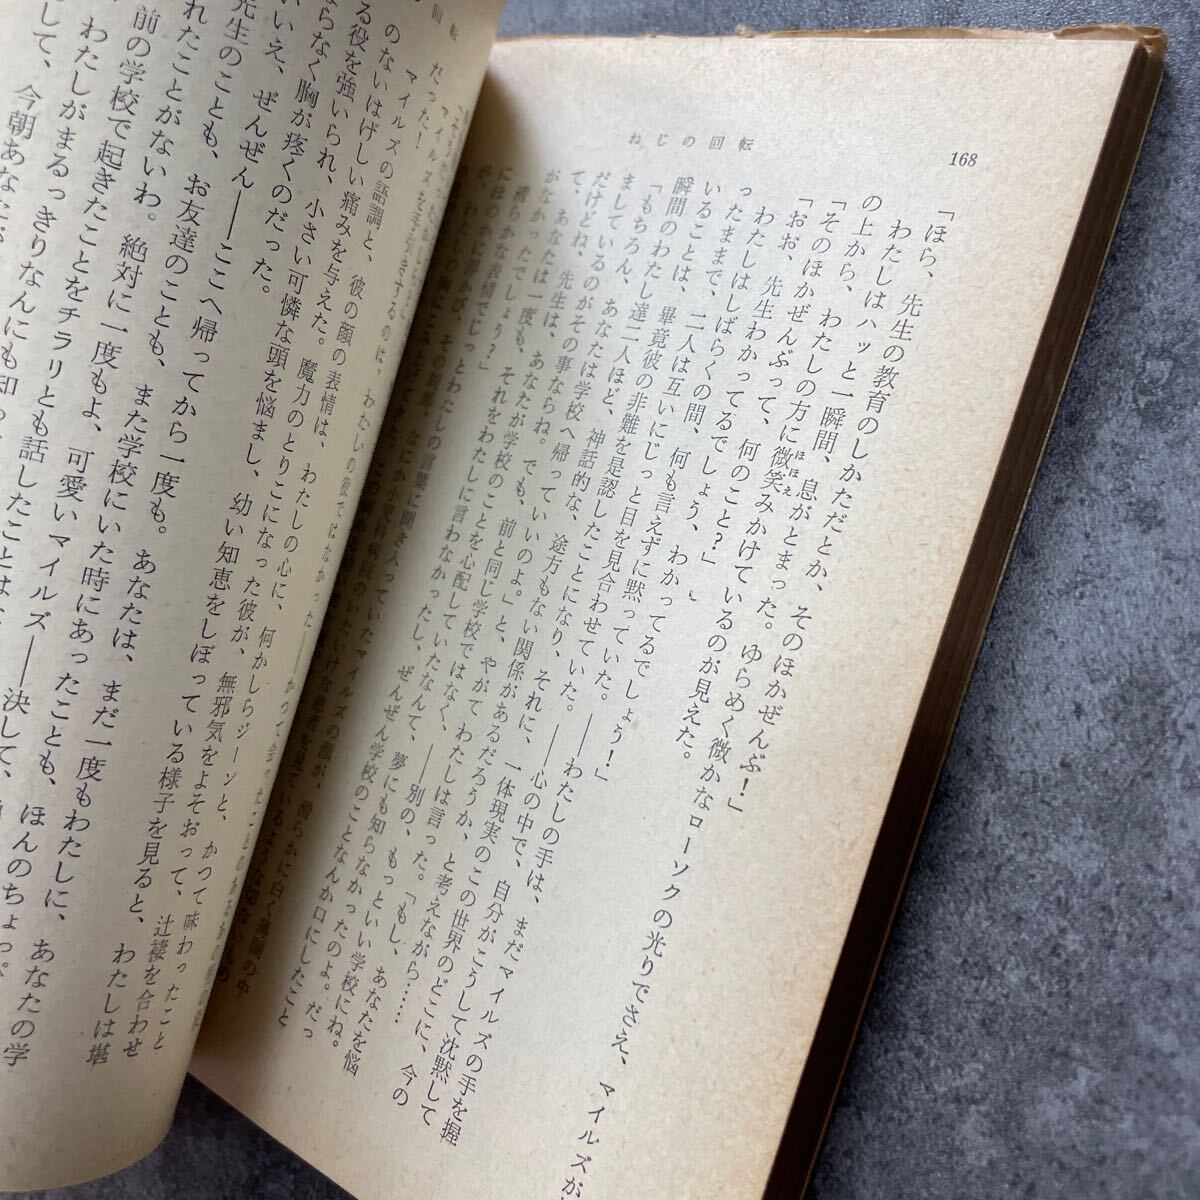 168
ねじの回転
「ほら、先生の教育のしかただとか、そのほかぜんぶ！」
わたしはハッと一瞬間、息がとまった。ゆらめく微かなローソクの光りでさえ、マイルズが
の上から、わたしの方に微笑みかけているのが見えた。
「そのほかぜんぶって、何のこと？」
「おお、先生わかってるでしょう、わかってるでしょう！」
わたしはしばらくの間、何も言えずに黙っていた。――わたしの手は、まだマイルズの手を握
ったままで、二人は互いにじっと目を見合わせていた。――心の中で、自分がこうして沈黙して
いることは、畢竟彼の非難を是認したことになり、それに、一体現実のこの世界のどこに、今の
瞬間のわたし達二人ほど、神話的な、途方もない関係があるだろうか、と考えながら……
「もちろん、あなたは学校へ帰っていいのよ。」と、やがてわたしは言った。「もし、あなたを悩
ましているのがその事ならね。でも、前と同じ学校ではなく、――別の、もっといい学校にね。
だけどね、先生は、あなたが学校のことを心配していたなんて、夢にも知らなかったのよ。だっ
て、あなたは一度も、それをわたしに言わなかったし、ぜんぜん学校のことなんか口にしたこと
がなかったでしょう？」
回転
だった！
マイルズの語調と、彼の顔の表情は、わたしの心に、何かしらジーンと、かつて味わったこと
のないはげしい痛みを与えた。魔力のとりこになった彼が、無邪気をよそおって、辻褄を合わせ
る役を強いられ、小さい可憐な頭を悩まし、幼い知恵をしぼっている様子を見ると、わたしは堪
らなく胸が疼くのだった。
いいえ、ぜんぜん――ここへ帰ってから一度も。あなたは、まだ一度もわたしに、あなたの学
先生のことも、お友達のことも、また学校にいた時にあったことも、ほんのちょっぴ
れたことがないわ。絶対に一度もよ、可愛いマイルズ――決して、
前の学校で起きたことをチラリとも話したことは
わたしがまるっきりなんにも知
して、今朝あなたが